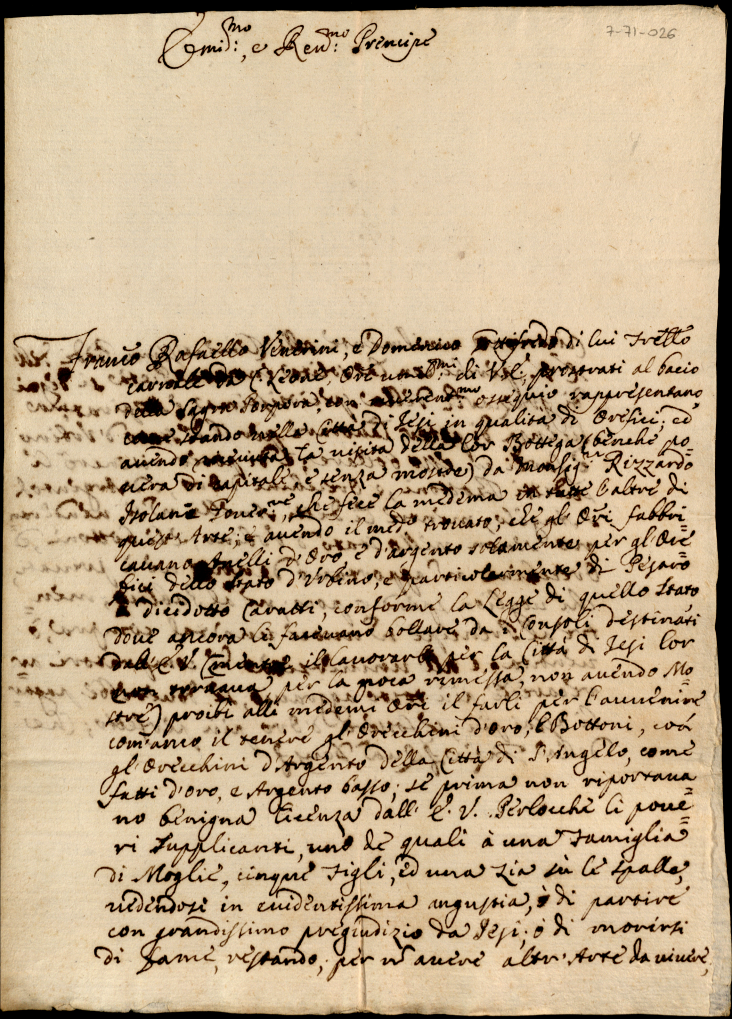 7-71-026
Emi:mo, e Reu:mo Prencipe
Franco Rafaello Venerini, e Domenico di lui fretto
carnale da prostrati al bacio
della Sagra Porpora, con ossequio rappresentano
come stando nella Città di Iesi in qualità di Orefici, ed
auendo riceuuta la uisita della lor Bottega (benche po=
uera di capitale, e senza mostre) da Monsigre Rizzardo
Isolani Gouerre, che fece la medema in tutte l'altre di
quest'Arte; e auendo il medo trouato, che gl'Ori fabbri=
cauano Anelli d'Oro, e d'argento solamente per gl'Ore=
fici dello Stato d'Urbino, e particolarmente di Pesaro
à dicidotto Caratti, conforme la Legge di quello Stato
doue ancora li faceuano bollare da i Consoli destinati
dall'E. V. (mentre il lauorarli per la Città di Iesi lor
per la poca rimessa, non auendo Mo=
stre) proibì alli medemi Ori il farli per l'auuenire
com'anco il tenere gl'Orecchini d'oro, e Bottoni, così
gl'Orecchini d'Argento della Città di S. Angelo, come
fatti d'oro, e Argento basso; se prima non riportaua=
no benigna licenza dall'E. V. Perlocchè li poue=
ri supplicanti, uno de quali à una famiglia
di Moglie, cinque figli, ed una zia sù le spalle,
uedendosi in euidentissima angustia, ò di partire
con grandissimo pregiudizio da Iesi, ò di morirsi
di fame, restando, per nō auere altr'Arte da uiuere,